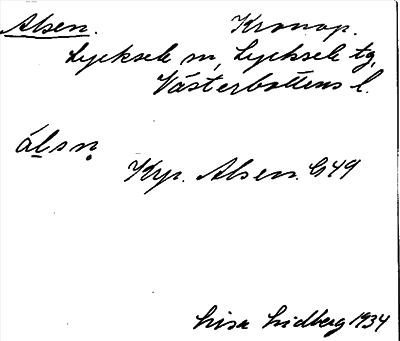 Alsen. Kronop.
Lycksele sn, Lycksele tg,
Västerbottens l.
álsn̥
Kyp. Alsen. G49
Lisa Lidberg 1934